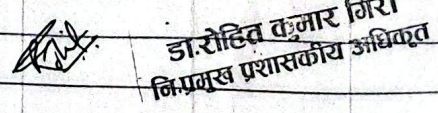 डा.रोहित कुमार गिरी
नि.प्रमुख प्रशासकीय अधिकृत